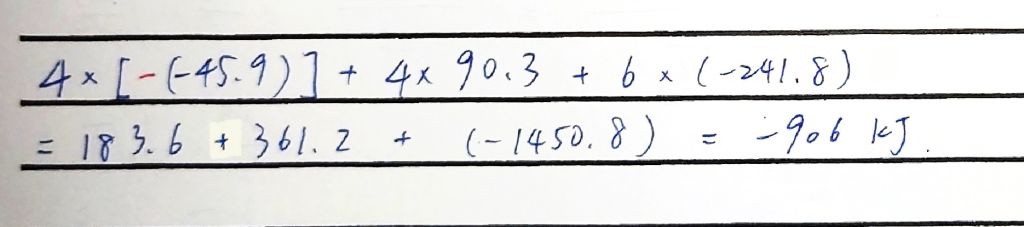 4 × [-(-45.9)] + 4 × 90.3 + 6 × (-241.8)
= 183.6 + 361.2 + (-1450.8) = -906 kJ.